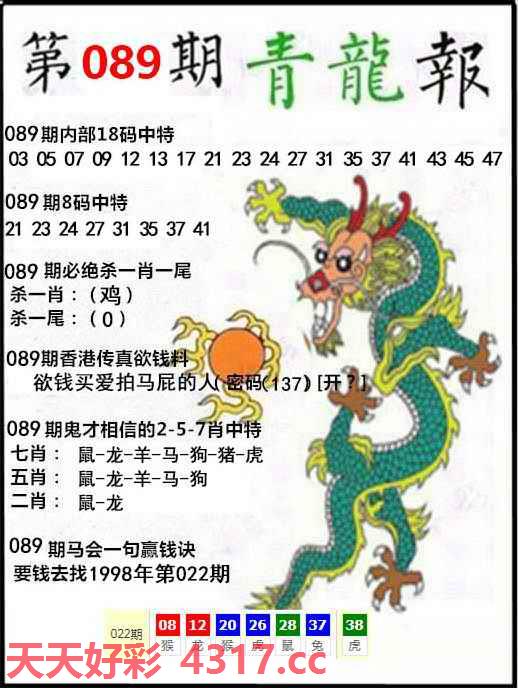 第089期青龍報
089期内部18码中特
03 05 07 09 12 13 17 21 23 24 27 31 35 37 41 43 45 47
089期8码中特
21 23 24 27 31 35 37 41
089 期必绝杀一肖一尾
杀一肖：（鸡）
杀一尾：（0）
089期香港传真欲钱料
欲钱买爱拍马屁的人（密码(137)[开？]
089期鬼才相信的2-5-7肖中特
七肖： 鼠-龙-羊-马-狗-猪-虎
五肖： 鼠-龙-羊-马-狗
二肖： 鼠-龙
089 期马会一句赢钱诀
要钱去找1998年第022期
022期 08 12 20 26 28 37 38
猴 龙 猴 虎 鼠 兔 虎
天天好彩 4317.cc